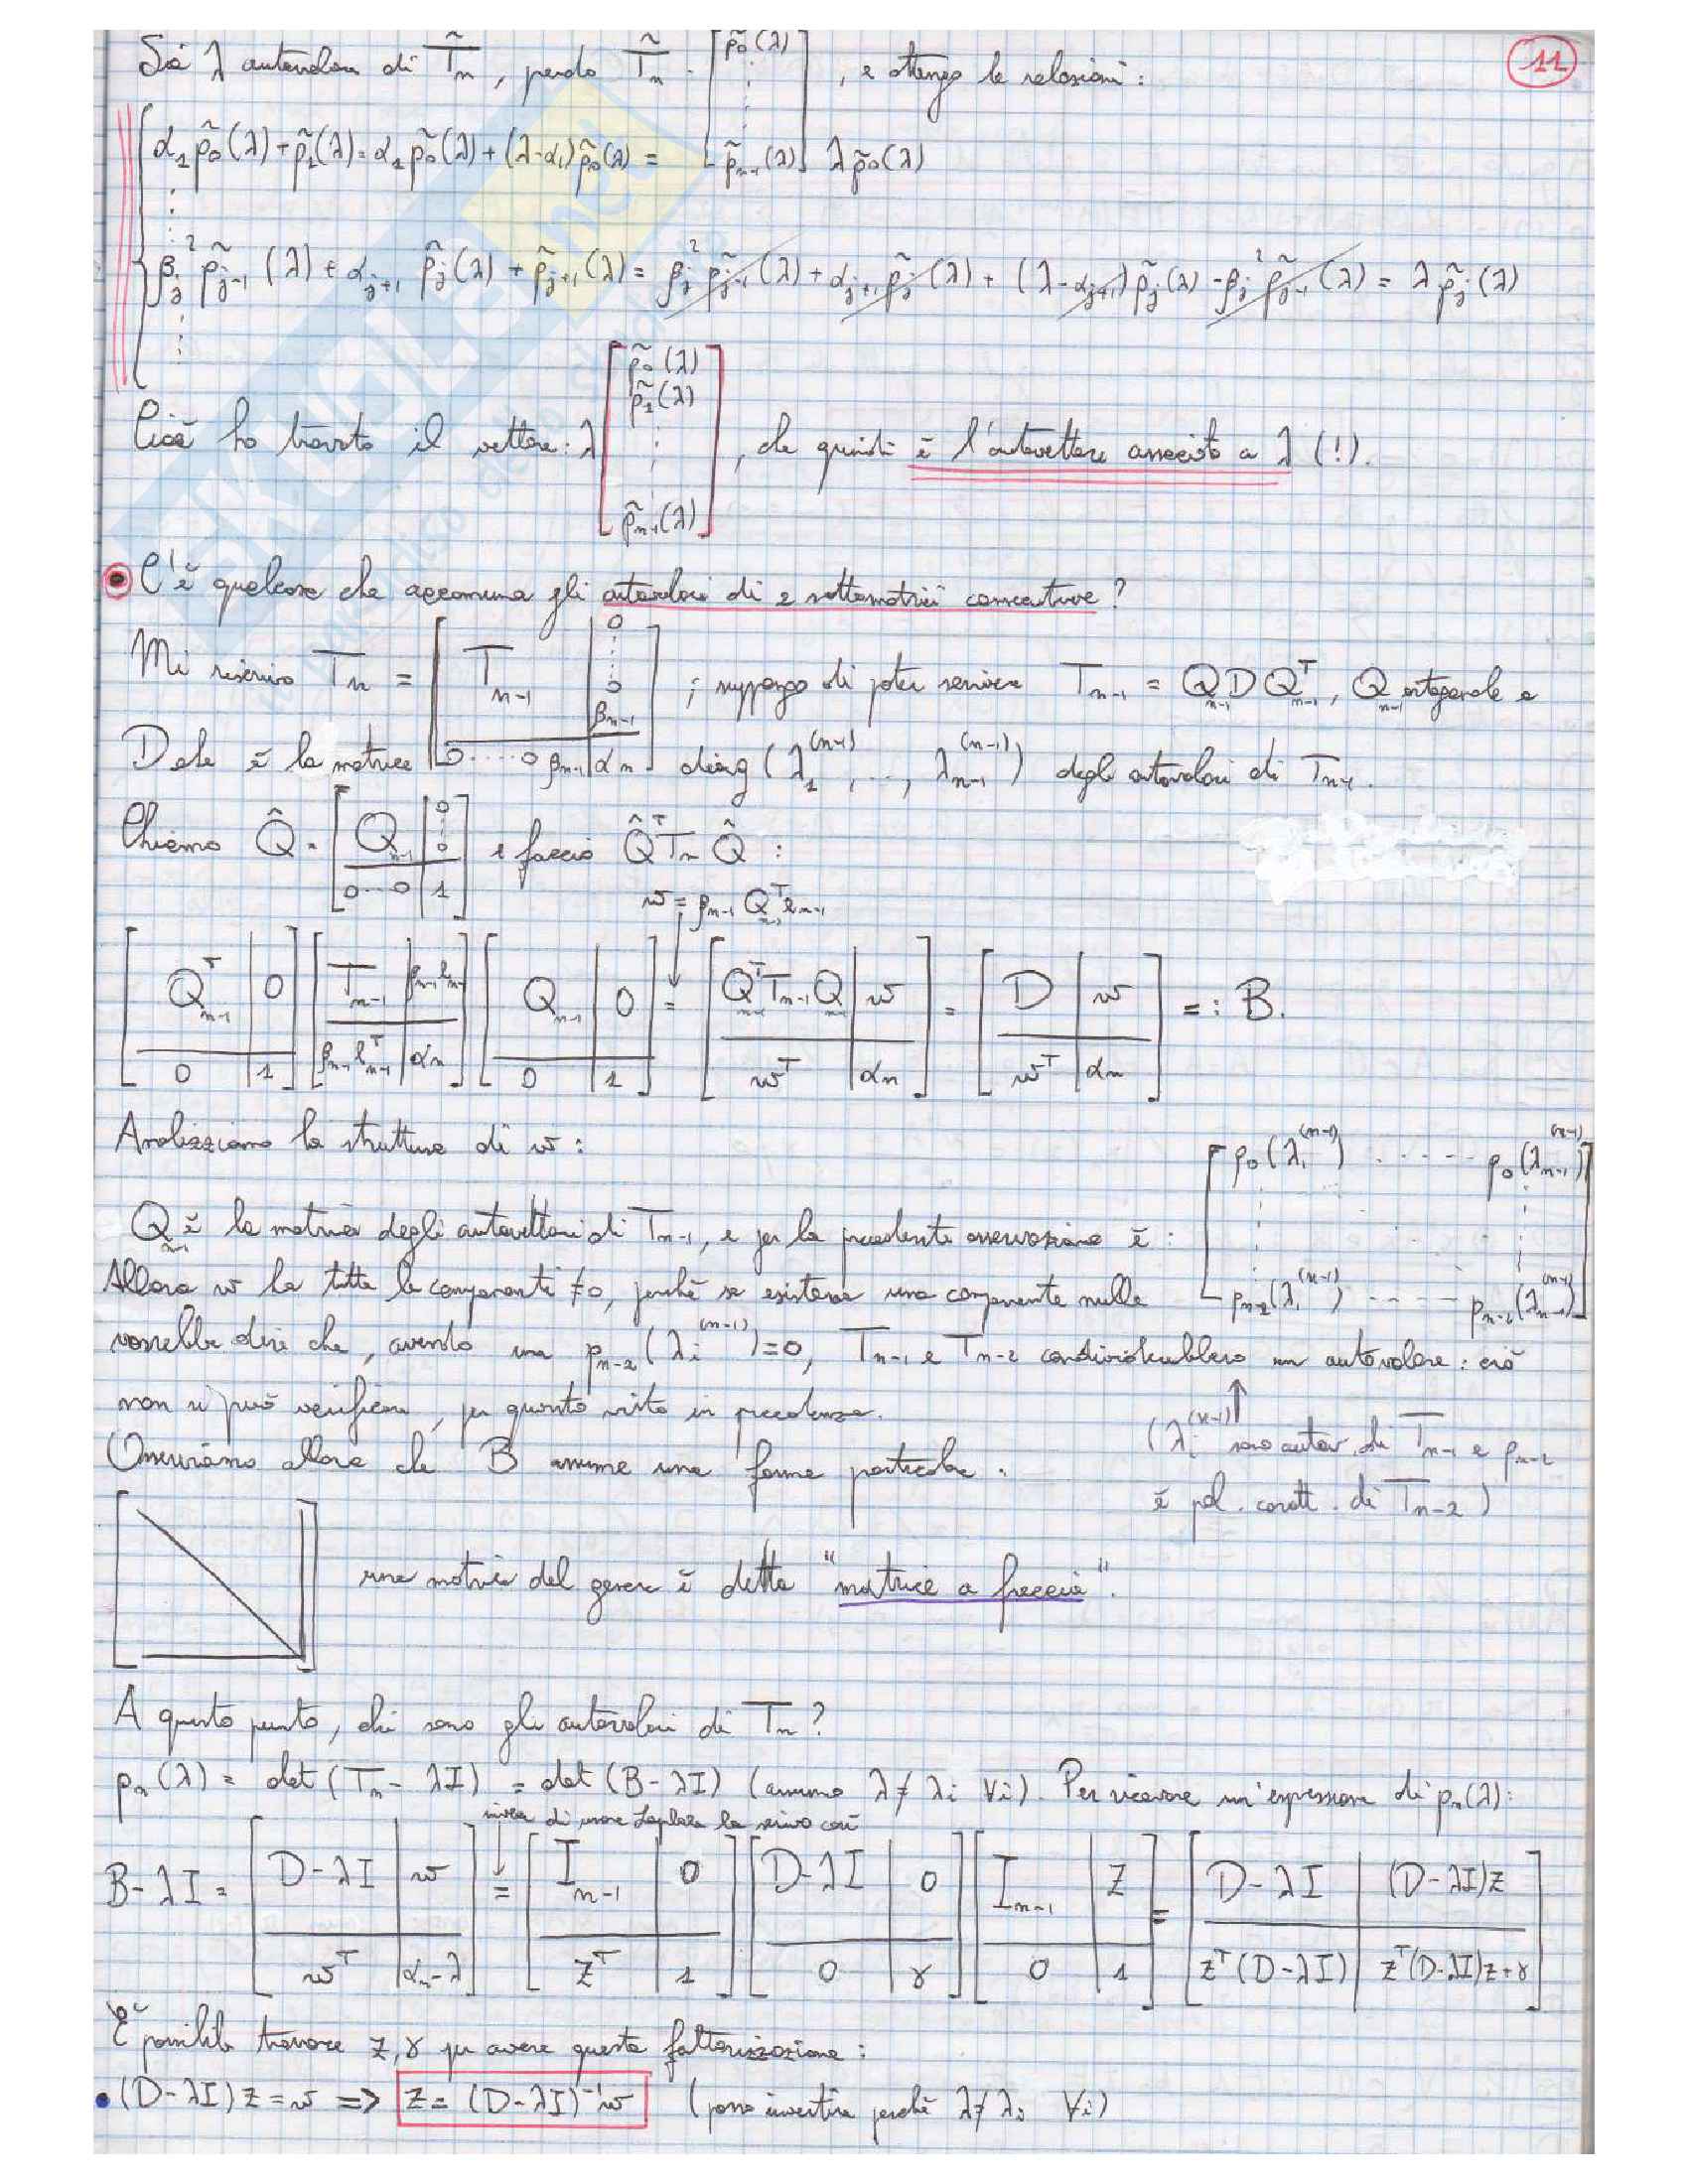 11
Sia λ autovalore di T̃n, prendo T̃n · [p̃0(λ) ⋮ p̃n-1(λ)], e ottengo le relazioni:
α1 p̃0(λ) + p̃1(λ) = α1 p̃0(λ) + (λ-α1) p̃0(λ) = λ p̃0(λ)
⋮
βj² p̃j-1(λ) + αj+1 p̃j(λ) + p̃j+1(λ) = βj² p̃j-1(λ) + αj+1 p̃j(λ) + (λ-αj+1) p̃j(λ) - βj² p̃j-1(λ) = λ p̃j(λ)
⋮
Cioè ho trovato il vettore: λ [p̃0(λ) p̃1(λ) ⋮ p̃n-1(λ)], che quindi è l'autovettore associato a λ (!).
• C'è qualcosa che accomuna gli autovalori di 2 sottomatrici consecutive?
Mi riscrivo Tn = [Tn-1 | 0 ⋮ 0 βn-1 ; 0 .... 0 βn-1 | αn] ; suppongo di poter scrivere Tn-1 = Qn-1 D Qn-1^T, Qn-1 ortogonale e
D che è la matrice diag(λ1^(n-1), ..., λn-1^(n-1)) degli autovalori di Tn-1.
Chiamo Q̂ = [Qn-1 | 0 ⋮ 0 ; 0...0 | 1] e faccio Q̂^T Tn Q̂ :
w = βn-1 Qn-1^T en-1
[Qn-1^T | 0 ; 0 | 1] [Tn-1 | βn-1 en-1 ; βn-1 en-1^T | αn] [Qn-1 | 0 ; 0 | 1] = [Qn-1^T Tn-1 Qn-1 | w ; w^T | αn] = [D | w ; w^T | αn] =: B.
Analizziamo la struttura di w:
Qn-1 è la matrice degli autovettori di Tn-1, e per la precedente osservazione è: [p0(λ1^(n-1)) ..... p0(λn-1^(n-1)) ; ⋮ ; pn-2(λ1^(n-1)) ..... pn-2(λn-1^(n-1))]
Allora w ha tutte le componenti ≠0, perchè se esistesse una componente nulla
vorrebbe dire che, avendo una pn-2(λi^(n-1))=0, Tn-1 e Tn-2 condividerebbero un autovalore: ciò
non si può verificare, per quanto visto in precedenza.
(λi^(n-1) sono autov. di Tn-1 e pn-2
è pol. caratt. di Tn-2)
Osserviamo allora che B assume una forma particolare:
una matrice del genere è detta "matrice a freccia".
A questo punto, chi sono gli autovalori di Tn?
pn(λ) = det(Tn - λI) = det(B-λI) (assumo λ≠λi ∀i). Per ricavare un'espressione di pn(λ):
invece di usare Laplace la scrivo così
B-λI = [D-λI | w ; w^T | αn-λ] = [In-1 | 0 ; z^T | 1] [D-λI | 0 ; 0 | γ] [In-1 | z ; 0 | 1] = [D-λI | (D-λI)z ; z^T(D-λI) | z^T(D-λI)z+γ]
È possibile trovare z,γ per avere questa fattorizzazione:
• (D-λI)z = w => z = (D-λI)^-1 w (posso invertire perchè λ≠λi ∀i)